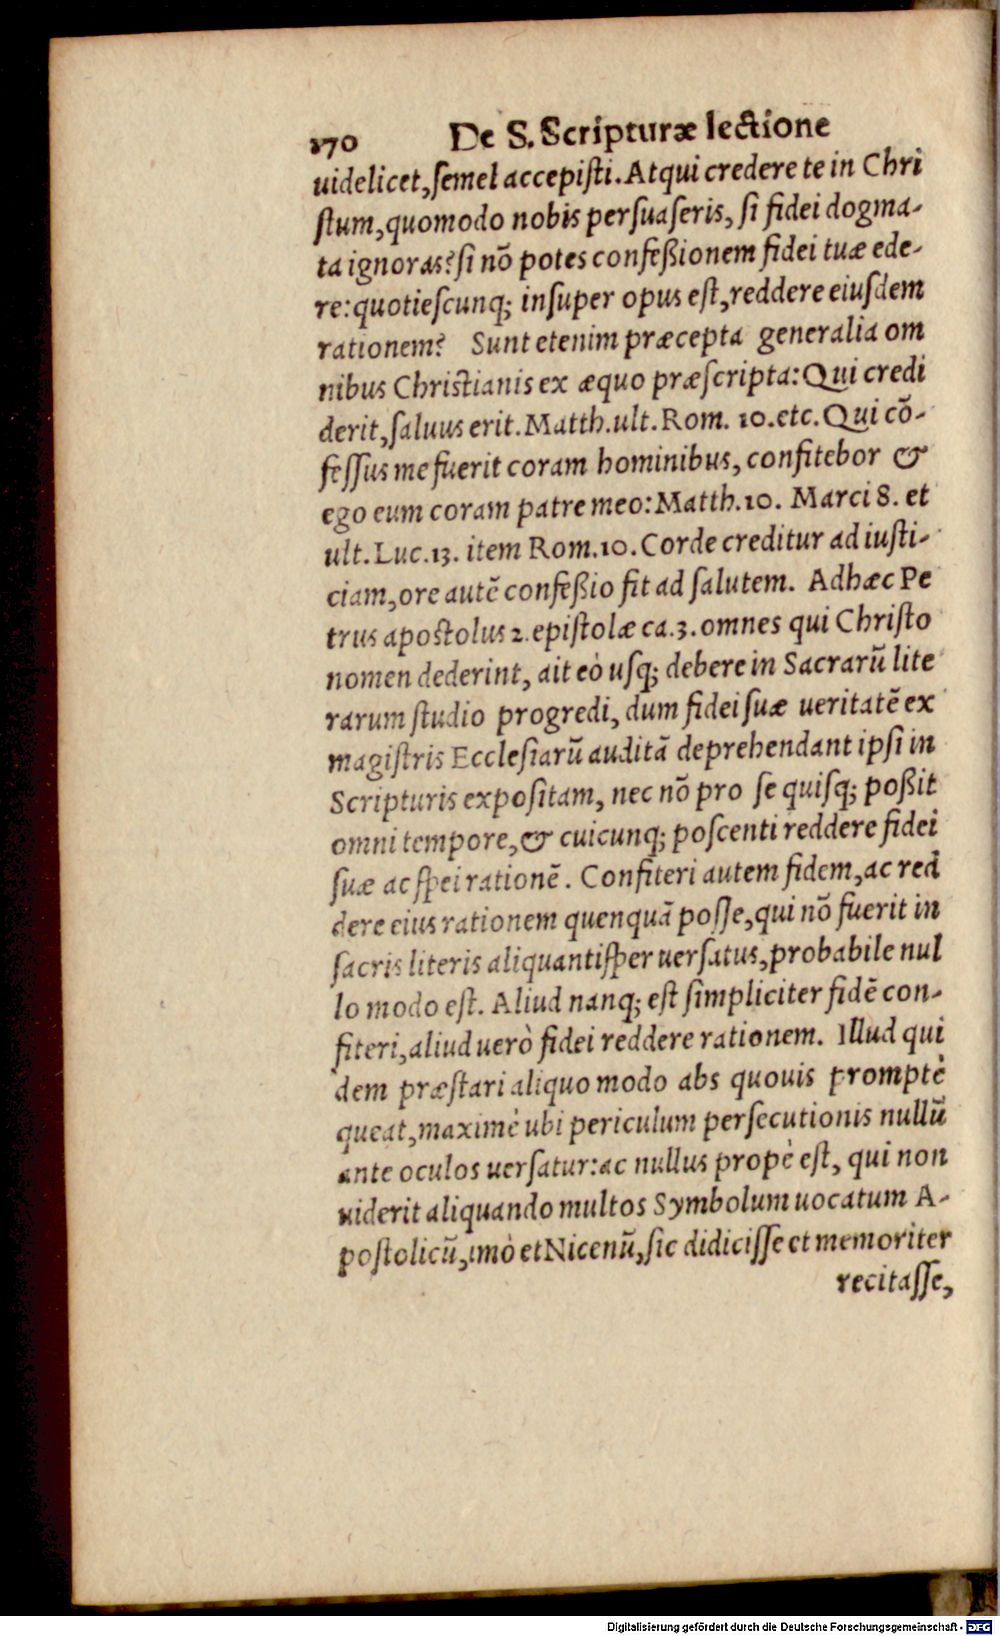 170 De S. Scripturæ lectione
uidelicet, ſemel accepiſti. Atqui credere te in Chri
ſtum, quomodo nobis perſuaſeris, ſi fidei dogma-
ta ignoras? ſi nõ potes confeßionem fidei tuæ ede-
re: quotieſcunq; inſuper opus eſt, reddere eiuſdem
rationem? Sunt etenim præcepta generalia om
nibus Chriſtianis ex æquo præſcripta: Qui credi
derit, ſaluus erit. Matth. ult. Rom. 10. etc. Qui cõ-
feſſus me fuerit coram hominibus, confitebor &
ego eum coram patre meo: Matth. 10. Marci 8. et
ult. Luc. 13. item Rom. 10. Corde creditur ad iuſti-
ciam, ore autẽ confeßio fit ad ſalutem. Adhæc Pe
trus apoſtolus 2. epiſtolæ ca. 3. omnes qui Chriſto
nomen dederint, ait eò uſq; debere in Sacrarũ lite
rarum ſtudio progredi, dum fidei ſuæ ueritatẽ ex
magiſtris Eccleſiarũ auditã deprehendant ipſi in
Scripturis expoſitam, nec nõ pro ſe quiſq; poßit
omni tempore, & cuicunq; poſcenti reddere fidei
ſuæ ac ſpei rationẽ. Confiteri autem fidem, ac red
dere eius rationem quenquã poſſe, qui nõ fuerit in
ſacris literis aliquantiſper uerſatus, probabile nul
lo modo eſt. Aliud nanq; eſt ſimpliciter fidẽ con-
fiteri, aliud uerò fidei reddere rationem. Illud qui
dem præſtari aliquo modo abs quouis promptè
queat, maximè ubi periculum perſecutionis nullũ
ante oculos uerſatur: ac nullus propè eſt, qui non
uiderit aliquando multos Symbolum uocatum A-
poſtolicũ, imò et Nicenũ, ſic didiciſſe et memoriter
recitaſſe,
Digitalisierung gefördert durch die Deutsche Forschungsgemeinschaft - DFG